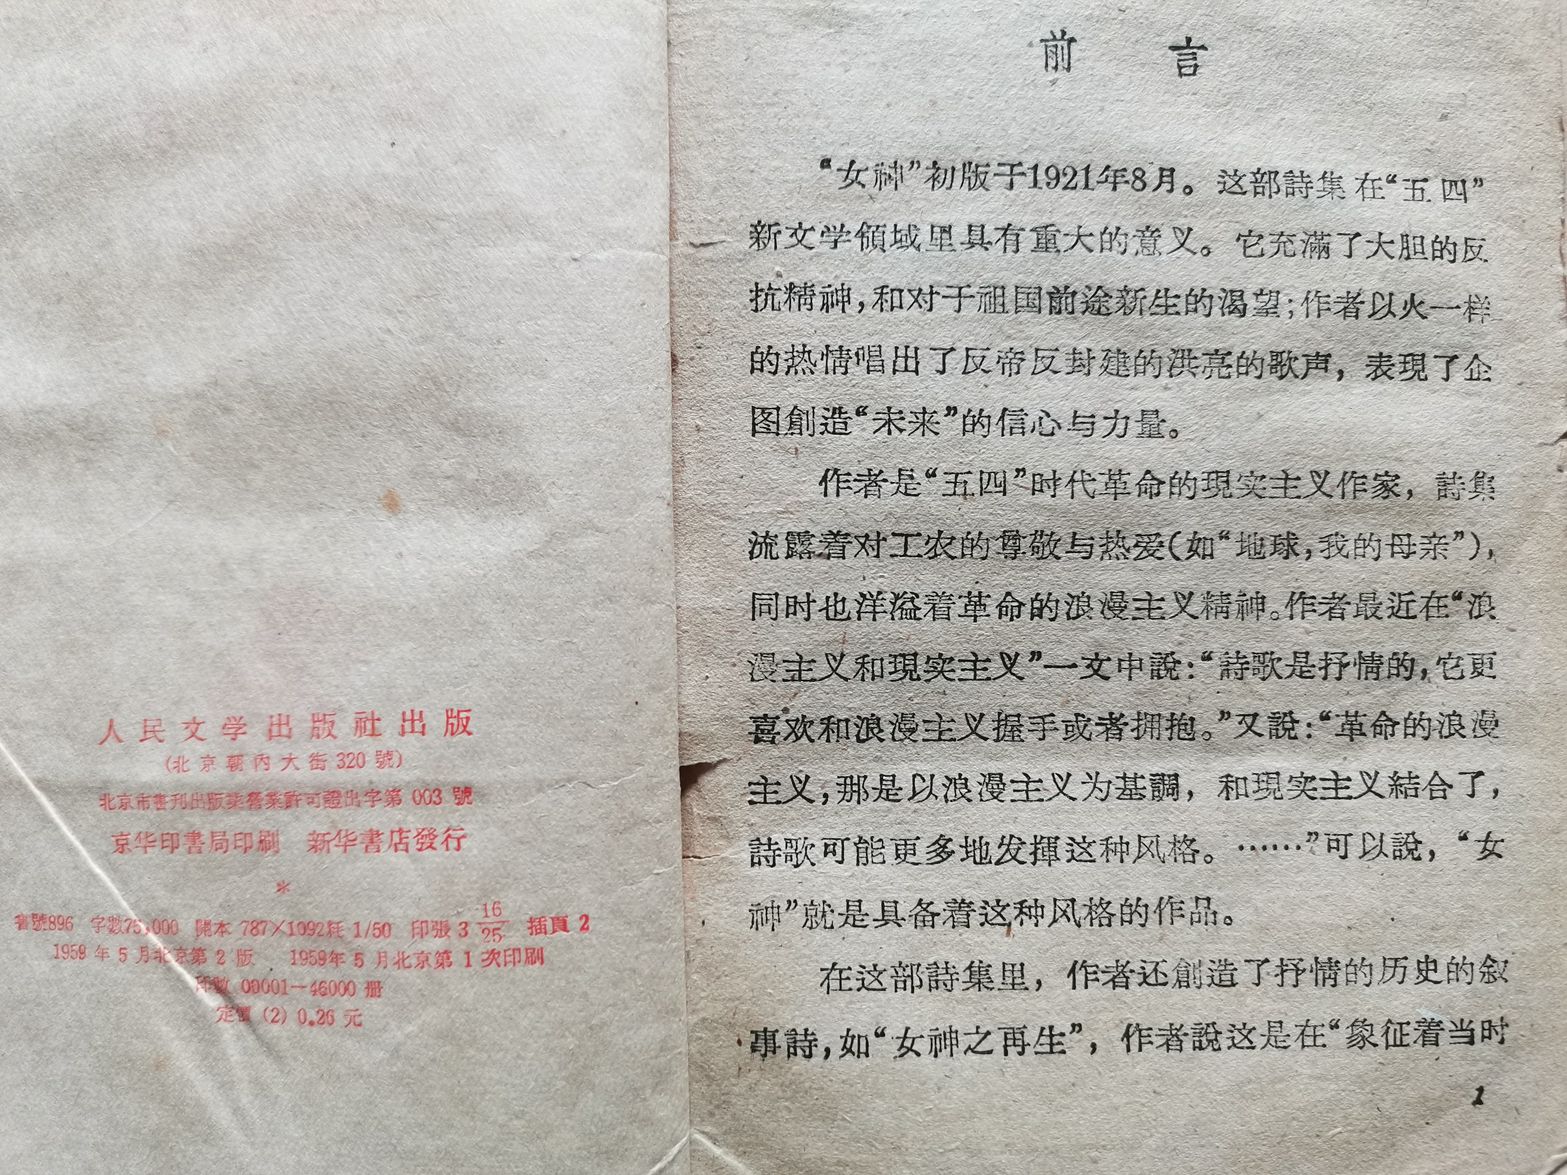 人民文学出版社出版
(北京朝內大街320號)
北京市書刊出版業營業許可證出字第003號
京华印書局印刷　新华書店發行
*
書號896 字數75,000 開本787×1092耗 1/50 印張3 16/25 插頁2
1959年5月北京第2版　1959年5月北京第1次印刷
印數 00001—46000 册
定價(2) 0.26 元
前　言
“女神”初版于1921年8月。这部詩集在“五四”
新文学領域里具有重大的意义。它充滿了大胆的反
抗精神,和对于祖国前途新生的渴望;作者以火一样
的热情唱出了反帝反封建的洪亮的歌声，表現了企
图創造“未来”的信心与力量。
作者是“五四”时代革命的現实主义作家，詩集
流露着对工农的尊敬与热爱(如“地球,我的母亲”),
同时也洋溢着革命的浪漫主义精神。作者最近在“浪
漫主义和現实主义”一文中說:“詩歌是抒情的,它更
喜欢和浪漫主义握手或者拥抱。”又說:“革命的浪漫
主义,那是以浪漫主义为基調，和現实主义結合了,
詩歌可能更多地发揮这种风格。……”可以說，“女
神”就是具备着这种风格的作品。
在这部詩集里，作者还創造了抒情的历史的叙
事詩,如“女神之再生”，作者說这是在“象征着当时
1